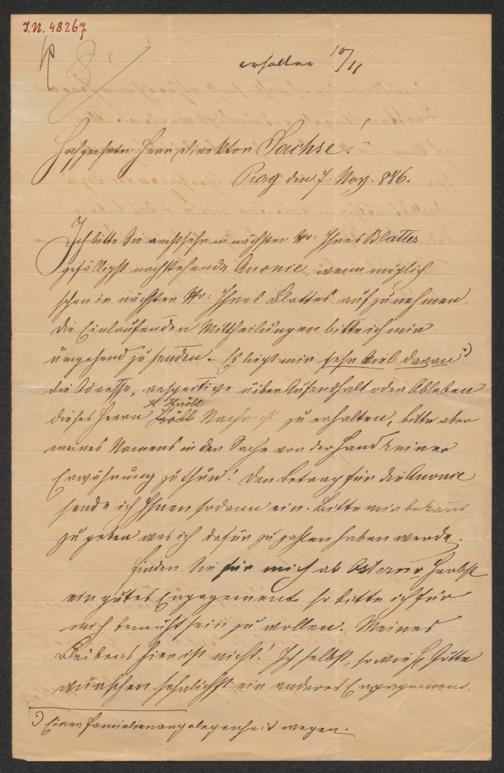 I.N. 48267
erhalten 10/11
Hochgeehrter Herr Direktor Sachse!
Prag den 7. Nov. 886.
Ich bitte Sie in nächster Nr: Ihres Blattes
gefälligst nachstehende Anonce, wenn möglich
schon in nächster Nr: Ihres Blattes aufzunehmen.
Die Einlaufenden Mittheilungen bitte ich mir
umgehend zu senden. Es liegt mir sehr viel daran *)
die Adresse, respective über Aufenthalt oder Ableben
dieses Herrn Knöbl Nachricht zu erhalten, bitte aber
meines Namens in der Sache von der Hand keiner
Erwähnung zu thun! Den Betrag für die Anonce
sende ich Ihnen sodann ein. Bitte mir bekannt
zu geben was ich dafür zu zahlen haben werde.
Finden Sie für mich ab Ostern o. Herbst
ein gutes Engagement so bitte ich für
mich bemüht sein zu wollen. Meines
Bleibens hier ist nicht! Ich selbst, sowie
wünschen sehnlichst ein anderes Engagement.
*) Einer Familienangelegenheit wegen.